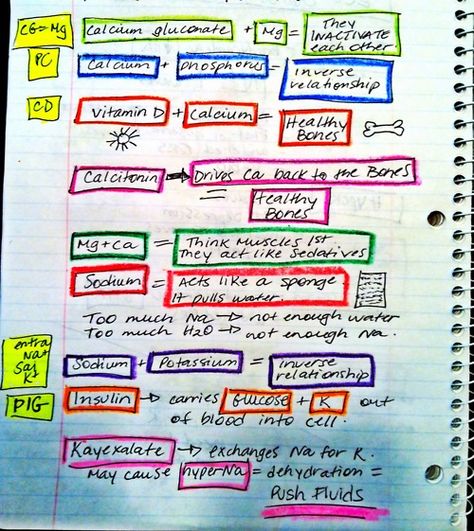 CG=Mg
Calcium gluconate + Mg = They
INACTIVATE
each other
PC
Calcium + phosphorus = Inverse
relationship
CD
Vitamin D + Calcium = Healthy
Bones
Calcitonin → Drives Ca back to the Bones
= Healthy
Bones
Mg + Ca = Think Muscles 1st
They act like Sedatives
Sodium = Acts like a sponge
It pulls water.
Too much Na → not enough water
Too much H2O → not enough Na.
Na+
K+
Sodium + Potassium = Inverse
relationship
PIG
Insulin → carries Glucose + K out
of blood into cell.
Kayexalate → exchanges Na for K.
May cause hyperNa = dehydration =
Push Fluids